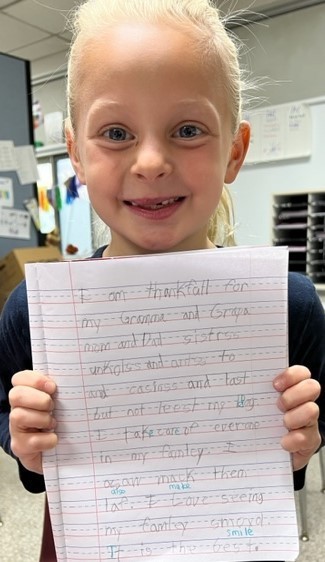 I am thankfall for
my Gramma and Grapa
mom and Dad sistrss
unkolss and antss to
and casinss and last
but not leest my dog
I take care of everione
in my famley. I
also make
mack then
laf. I Love seeing
my famley
smile
It is the best.